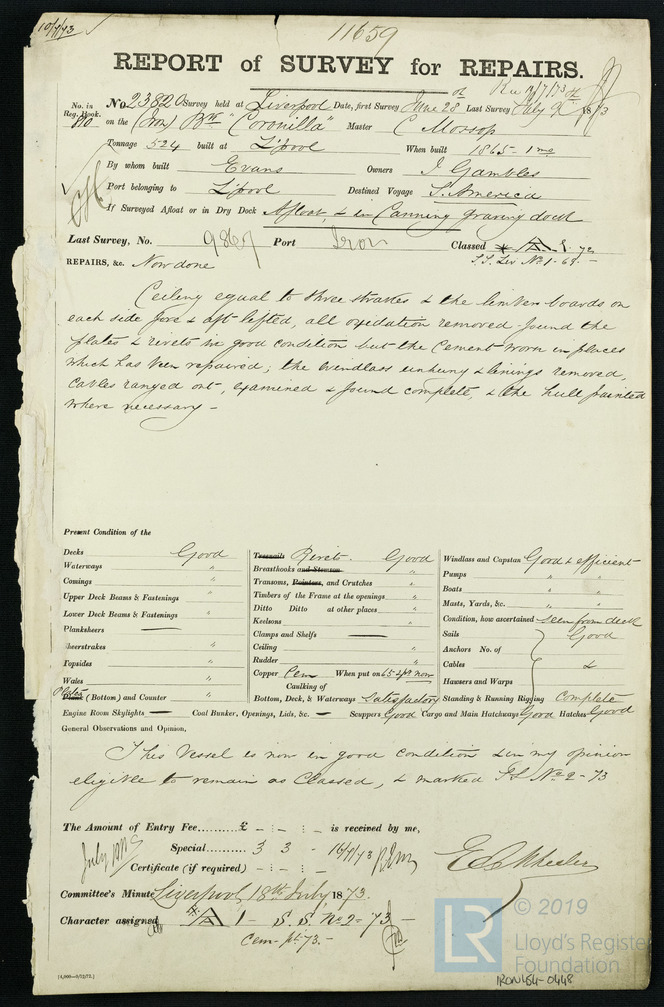 10/7/73
11659
REPORT of SURVEY for REPAIRS.
Rec 10/7/73
No. in Reg. Book. 810
No 23820 Survey held at Liverpool Date, first Survey June 28th Last Survey July 9th 1873
on the (Iron) Bk "Coronilla" Master C Mossop
Tonnage 524 built at L'pool When built 1865 - 1 mo
By whom built Evans Owners J Gambles
Port belonging to L'pool Destined Voyage S. America
If Surveyed Afloat or in Dry Dock Afloat, & in Canning graving dock
Last Survey, No. 9867 Port Iron Classed A 1 . 72
REPAIRS, &c. Now done S.S. Liv No 1 - 69. -
Ceiling equal to three strakes & the limber boards on
each side fore & aft lifted, all oxidation removed found the
plates & rivets in good condition but the Cement worn in places
which has been repaired; the windlass unhung & linings removed,
Cables ranged out, examined & found complete, & the hull painted
where necessary -
Present Condition of the
Decks Good
Waterways "
Comings "
Upper Deck Beams & Fastenings "
Lower Deck Beams & Fastenings "
Planksheers —
Sheerstrakes "
Topsides "
Wales "
Plates Plank (Bottom) and Counter "
Treenails Rivets. Good
Breasthooks and Stemson "
Transoms, Pointers, and Crutches "
Timbers of the Frame at the openings "
Ditto Ditto at other places "
Keelsons "
Clamps and Shelfs —
Ceiling "
Rudder "
Copper Cem When put on 65 & pt now
Caulking of
Bottom, Deck, & Waterways Satisfactory
Windlass and Capstan Good & efficient
Pumps " "
Boats " "
Masts, Yards, &c. " "
Condition, how ascertained seen from deck
Sails Good
Anchors No. of
Cables &
Hawsers and Warps
Standing & Running Rigging Complete
Engine Room Skylights — Coal Bunker, Openings, Lids, &c. — Scuppers Good Cargo and Main Hatchways Good Hatches Good
General Observations and Opinion,
This Vessel is now in good condition & in my opinion
eligible to remain as Classed, & marked SS No 2 - 73
The Amount of Entry Fee......... £ - : - : - is received by me,
Special......... 3 3 - 16/7/73
Certificate (if required) - : - : -
E C Wheeler
Committee's Minute Liverpool, 18th July 1873.
Character assigned A 1 - S. S. No 2 - 73 -
Cem. pt. 73. -
LR
© 2019
Lloyd's Register
Foundation
IRON454-0448